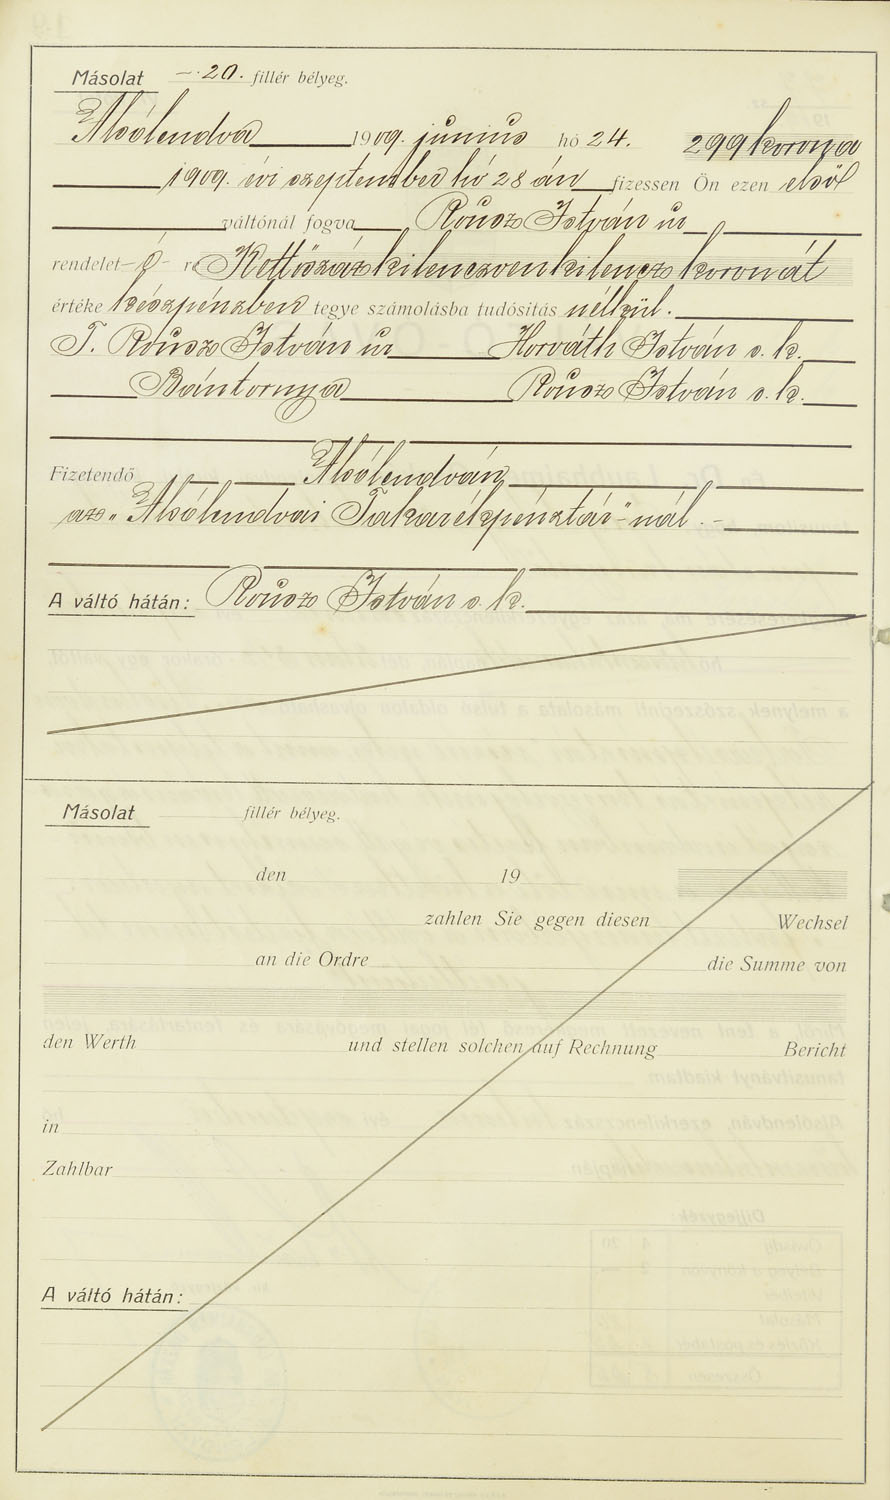 Másolat —20. fillér bélyeg.
Alsólendva 1909. junius hó 24. 299 korona
1909. évi szeptember hó 28 án fizessen Ön ezen első
váltónál fogva Róusz István úr
rendelet-é- re Kettőszázkilenczvenkilencz koronát
értéke készpénzben tegye számolásba tudósítás nélkül.
T. Róusz István úr Horváth István s. k.
Bántornya Róusz István s. k.
Fizetendő Alsólendván
az „Alsólendvai Takarékpénztár"-nál.-
A váltó hátán: Róusz István s. k.
Másolat fillér bélyeg.
den 19
zahlen Sie gegen diesen Wechsel
an die Ordre die Summe von
den Werth und stellen solchen auf Rechnung Bericht
in
Zahlbar
A váltó hátán: